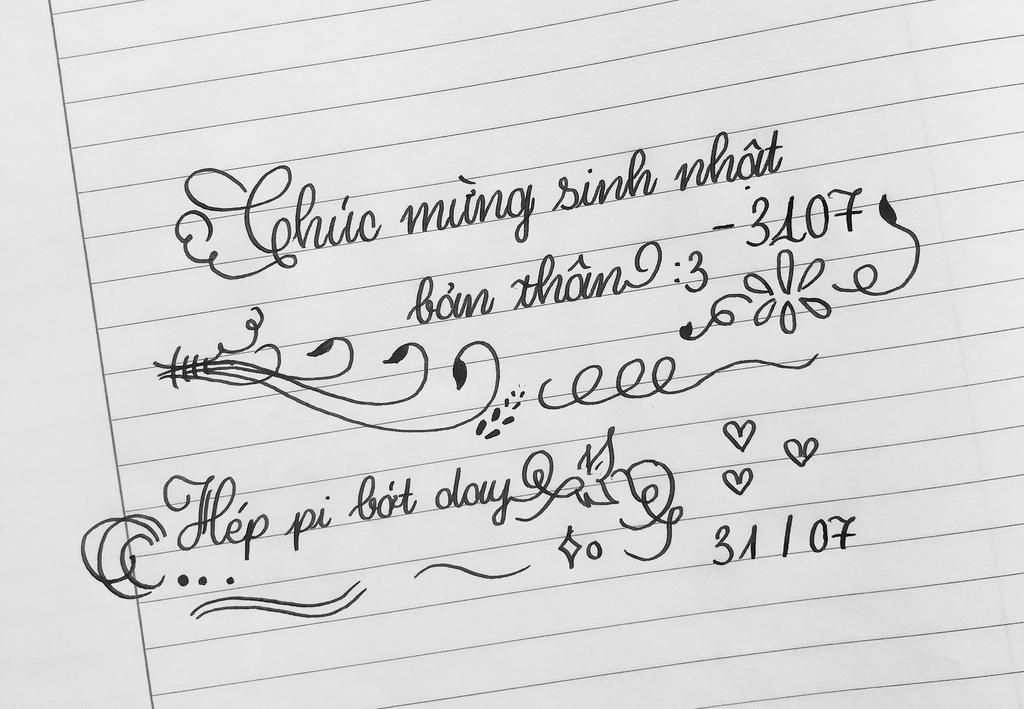 Chúc mừng sinh nhật
- 3107
bản thân :3
Hép pi bớt day
31 / 07